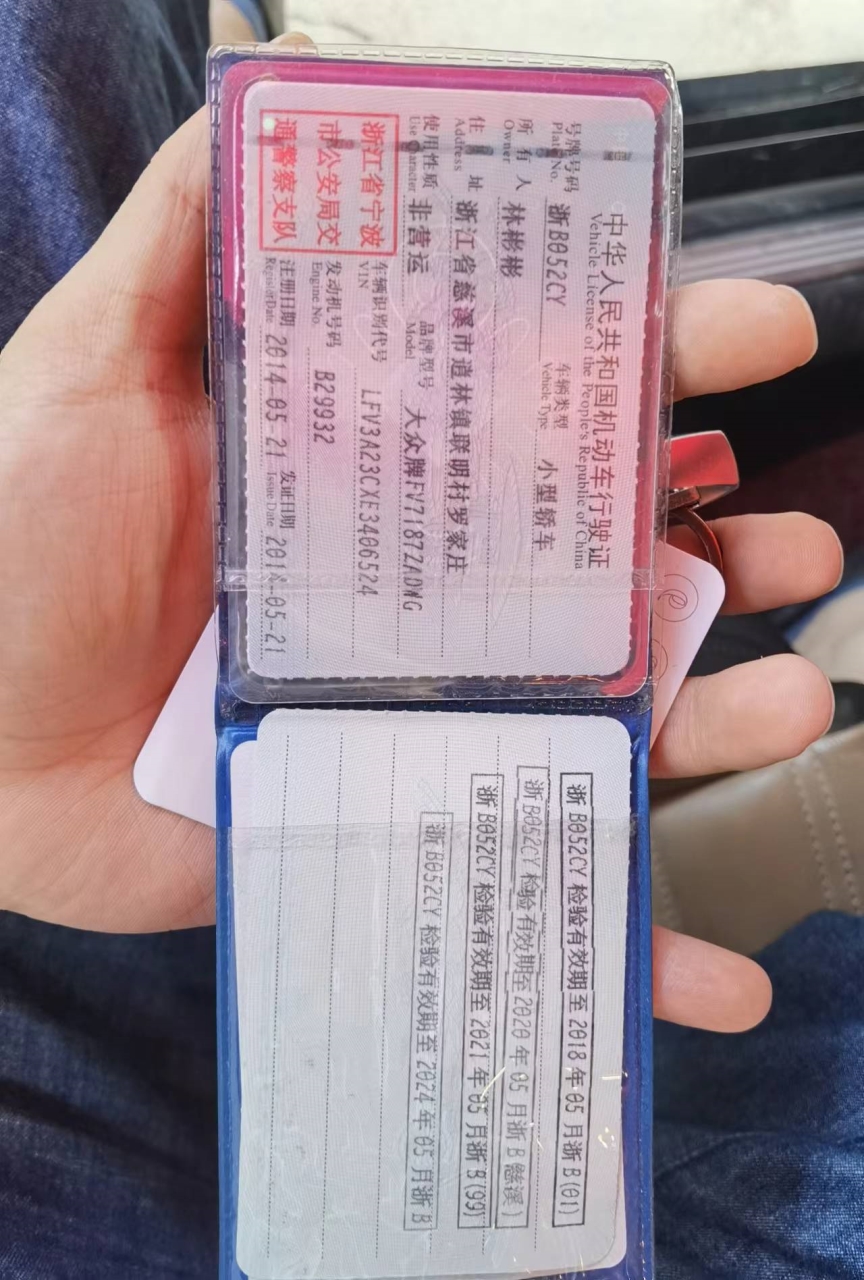 中华人民共和国机动车行驶证
Vehicle License of the People's Republic of China
号牌号码 浙B052CY 车辆类型 小型轿车
Plate No. Vehicle Type
所有人 林彬彬
Owner
住址 浙江省慈溪市逍林镇联明村罗家庄
Address
使用性质 非营运 品牌型号 大众牌FV7187ZADWG
Use Character Model
浙江省宁波
市公安局交
通警察支队
车辆识别代号 LFV3A23CXE3406524
VIN
发动机号码 B29932
Engine No.
注册日期 2014-05-21 发证日期 2014-05-21
Register Date Issue Date
浙B052CY 检验有效期至2018年05月浙B(01)
浙B052CY 检验有效期至2020年05月浙B慈溪)
浙B052CY 检验有效期至2021年05月浙B(99)
浙B052CY 检验有效期至2024年05月浙B